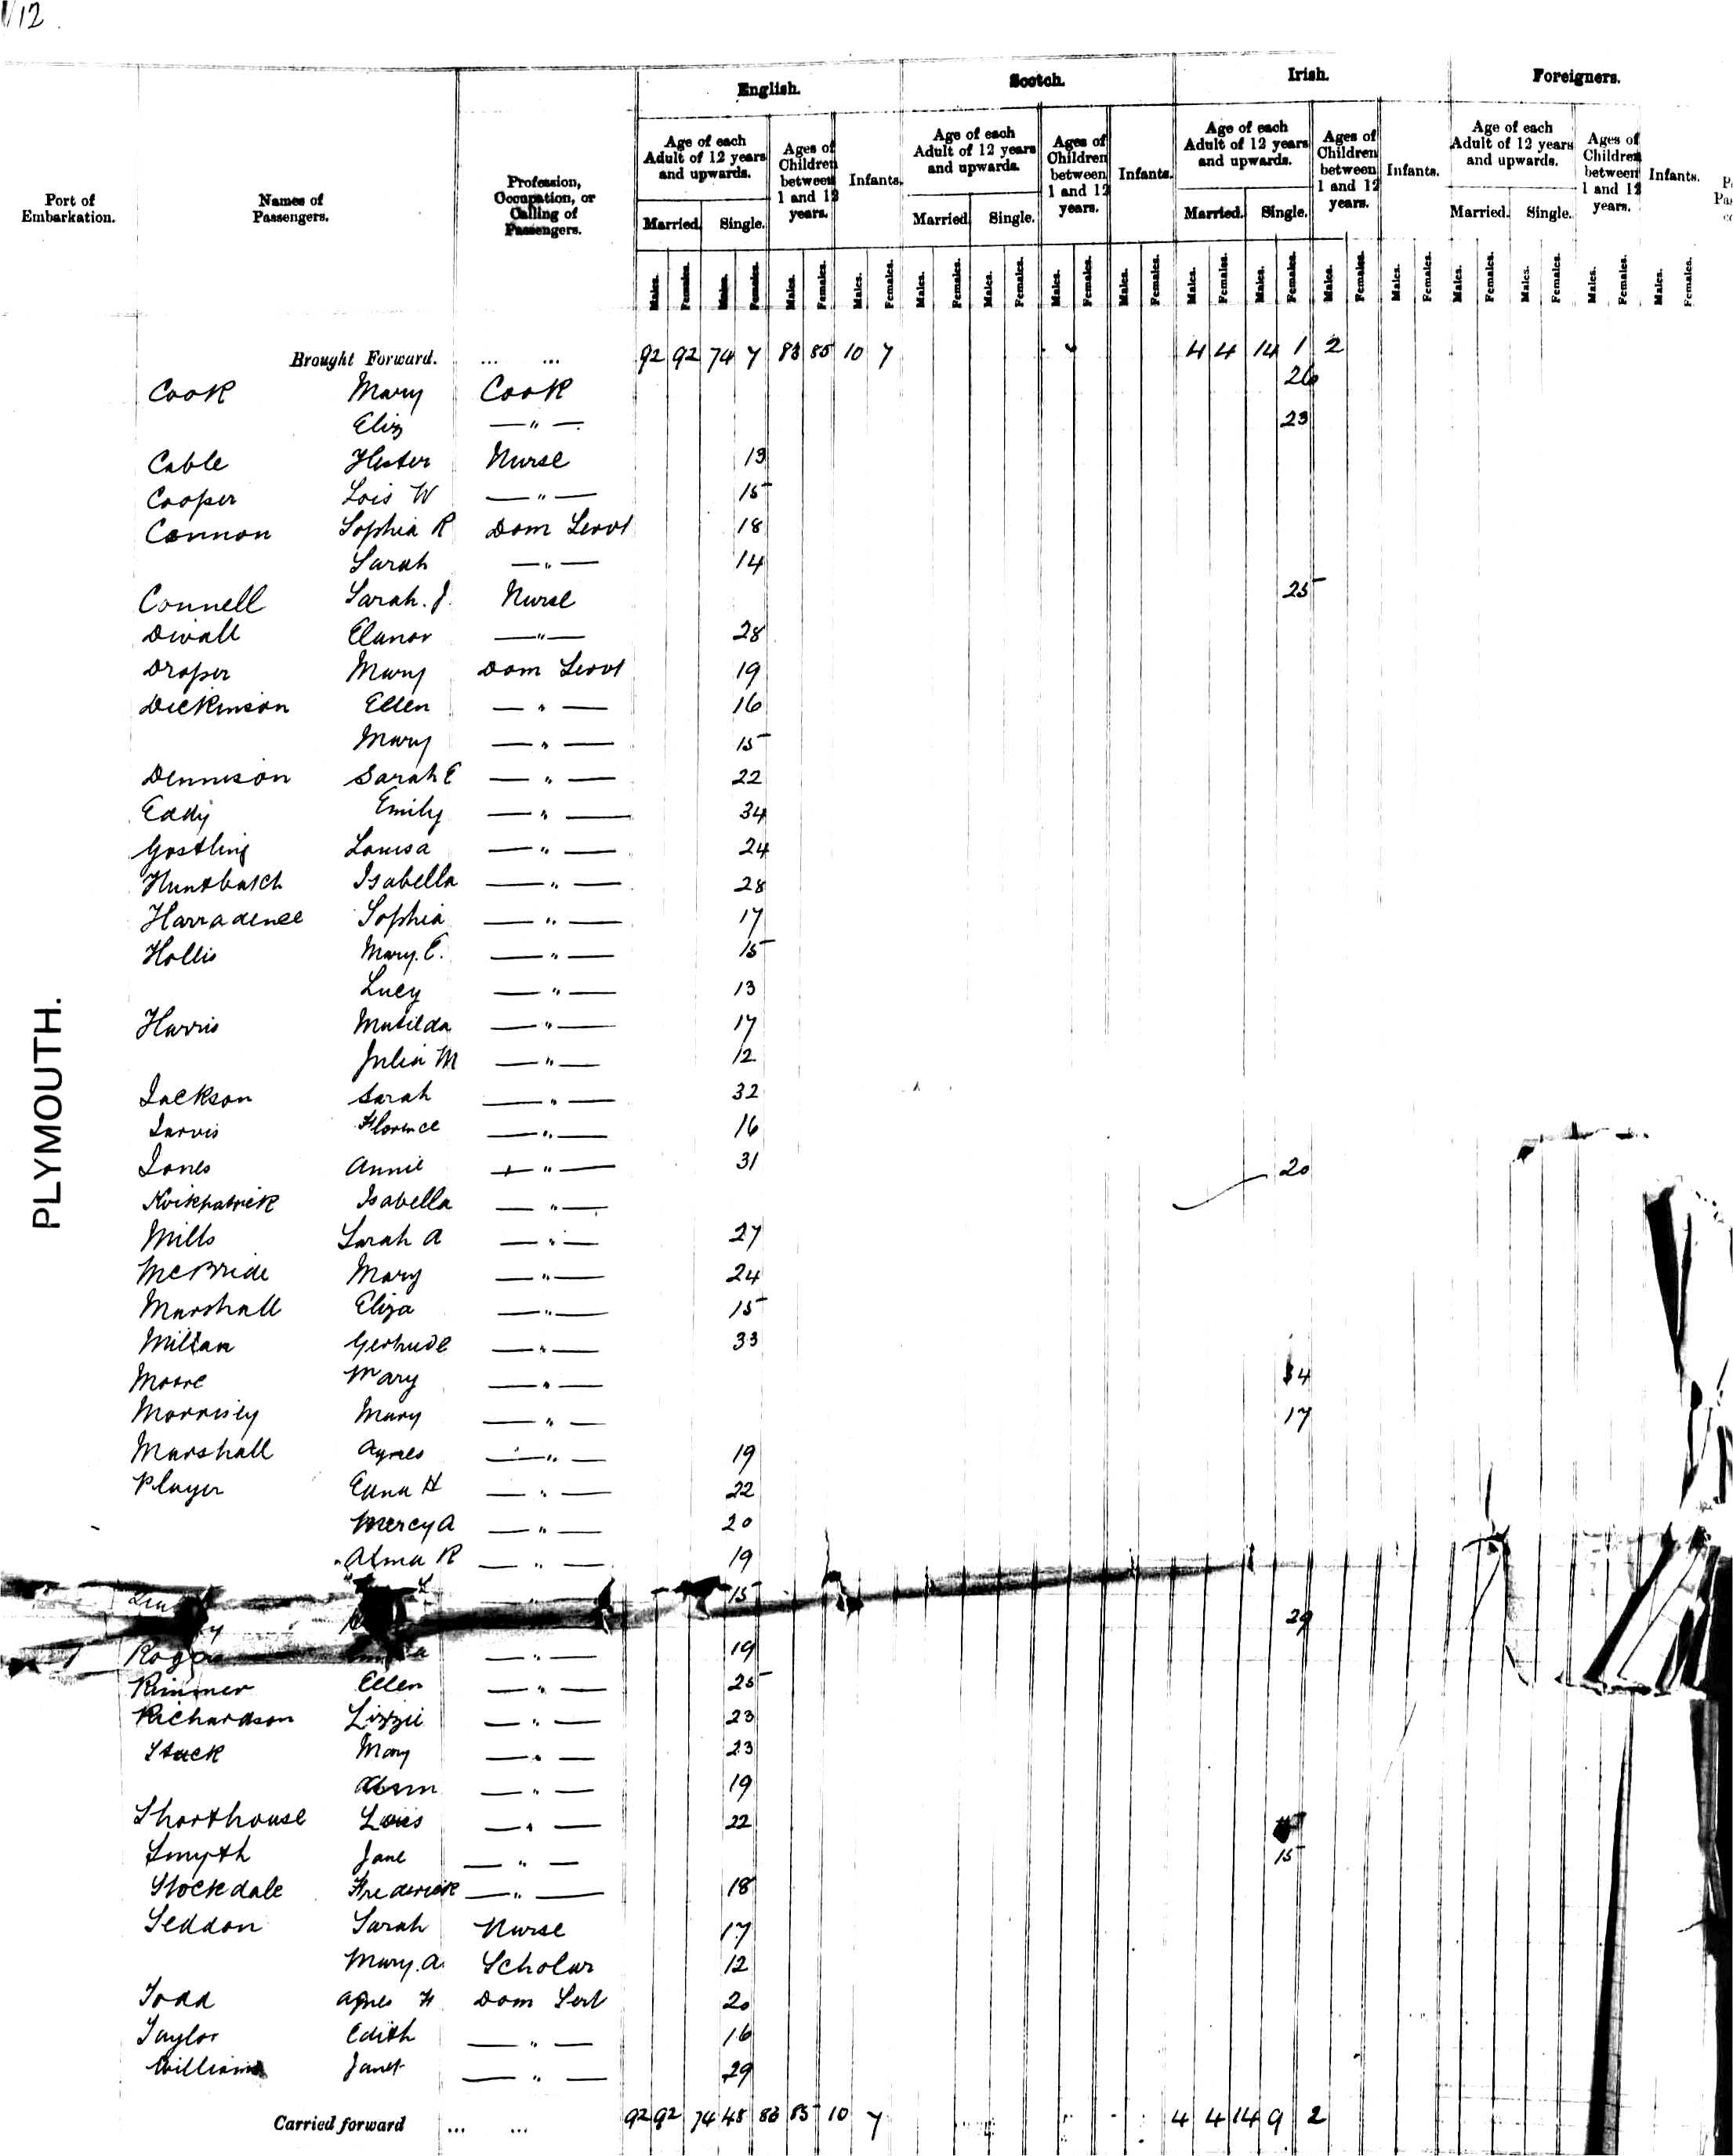 1/12.
English. Scotch. Irish. Foreigners.
Port of Embarkation. Names of Passengers. Profession, Occupation, or Calling of Passengers. Age of each Adult of 12 years and upwards. Ages of Children between 1 and 12 years. Infants. Age of each Adult of 12 years and upwards. Ages of Children between 1 and 12 years. Infants. Age of each Adult of 12 years and upwards. Ages of Children between 1 and 12 years. Infants. Age of each Adult of 12 years and upwards. Ages of Children between 1 and 12 years. Infants.
Married. Single. Married. Single. Married. Single. Married. Single.
Males. Females. Males. Females. Males. Females. Males. Females. Males. Females. Males. Females. Males. Females. Males. Females. Males. Females. Males. Females. Males. Females. Males. Females. Males. Females. Males. Females. Males. Females. Males. Females.
Brought Forward. ... ... 92 92 74 7 83 85 10 7 4 4 14 1 2
Cook Mary Cook 26
Eliz — " — 23
Cable Hester Nurse 13
Cooper Lois W — " — 15
Cannon Sophia R Dom Servt 18
Sarah — " — 14
Connell Sarah. J. Nurse 25
Divall Elanor — " — 28
Draper Mary Dom Servt 19
Dickinson Ellen — " — 16
Mary — " — 15
Dennison Sarah E — " — 22
Eddy Emily — " — 34
Gostling Louisa — " — 24
Huntbatch Isabella — " — 28
Harradence Sophia — " — 17
Hollis Mary. E. — " — 15
Lucy — " — 13
Harris Matilda — " — 17
Julia M — " — 12
Jackson Sarah — " — 32
Jarvis Florence — " — 16
PLYMOUTH.
Jones Annie — " — 31
Kirkpatrick Isabella — " — 20
Mills Sarah A — " — 27
McBride Mary — " — 24
Marshall Eliza — " — 15
Gertrude — " — 33
Moore Mary — " — 34
Morrisey Mary — " — 17
Marshall Agnes — " — 19
Player Edna H — " — 22
Mercy A — " — 20
Alma R — " — 19
15
29
19
Rimmer Ellen — " — 25
Richardson Lizzie — " — 23
Stack Mary — " — 23
— " — 19
Shorthouse Lois — " — 22
Smyth Jane — " — 15
Stockdale Frederick — " — 18
Seddon Sarah Nurse 17
Mary. A. Scholar 12
Todd Agnes H Dom Sert 20
Taylor Edith — " — 16
Williams Janet — " — 29
Carried forward ... ... 92 92 74 48 83 85 10 7 4 4 14 9 2